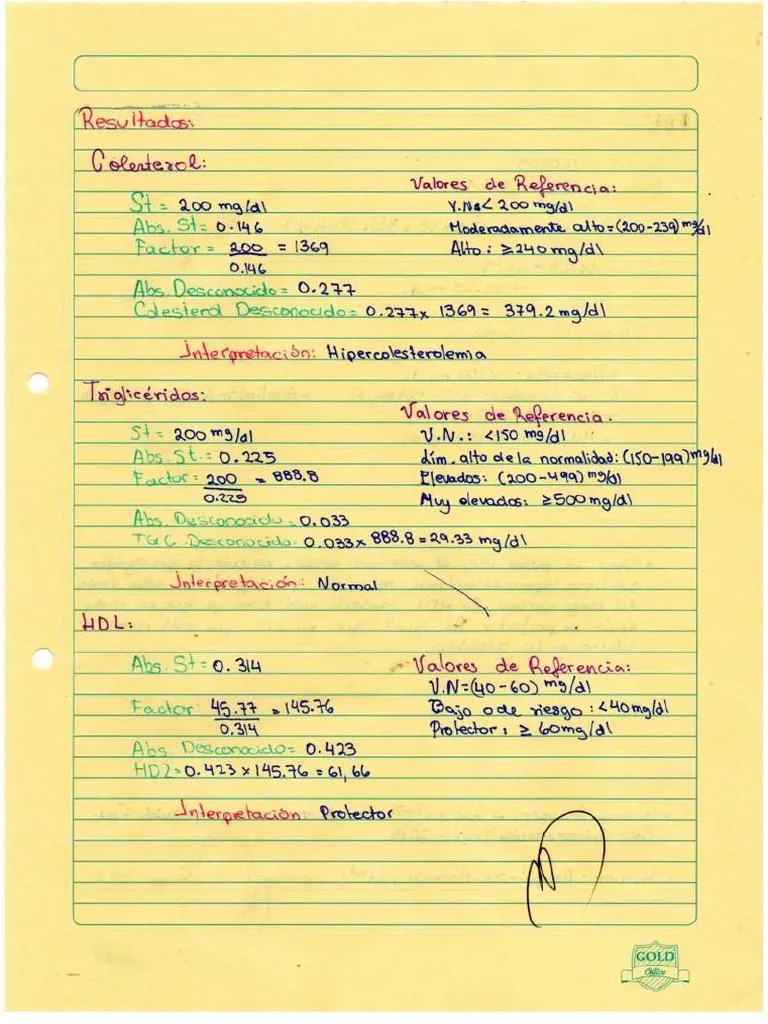 Resultados:
Colesterol:
Valores de Referencia:
St = 200 mg/dl
V.N≤ < 200 mg/dl
Abs. St = 0.146
Moderadamente alto = (200-239) mg/dl
Factor = 200 = 1369
0.146
Alto: ≥240 mg/dl
Abs. Desconocido = 0.277
Colesterol Desconocido = 0.277 x 1369 = 379.2 mg/dl
Interpretación: Hipercolesterolemia
Triglicéridos:
Valores de Referencia.
St = 200 mg/dl
V.N.: <150 mg/dl
Abs. St. = 0.225
Lím. alto de la normalidad: (150-199) mg/dl
Factor = 200 = 888.8
0.225
Elevados: (200-499) mg/dl
Muy elevados: ≥500 mg/dl
Abs. Desconocido = 0.033
TGC Desconocido: 0.033 x 888.8 = 29.33 mg/dl
Interpretación: Normal
HDL:
Abs. St = 0.314
Valores de Referencia:
V.N = (40-60) mg/dl
Factor 45.77 = 145.76
0.314
Bajo o de riesgo: <40 mg/dl
Protector: ≥ 60 mg/dl
Abs. Desconocido = 0.423
HDL = 0.423 x 145.76 = 61,66
Interpretación: Protector
GOLD
Office